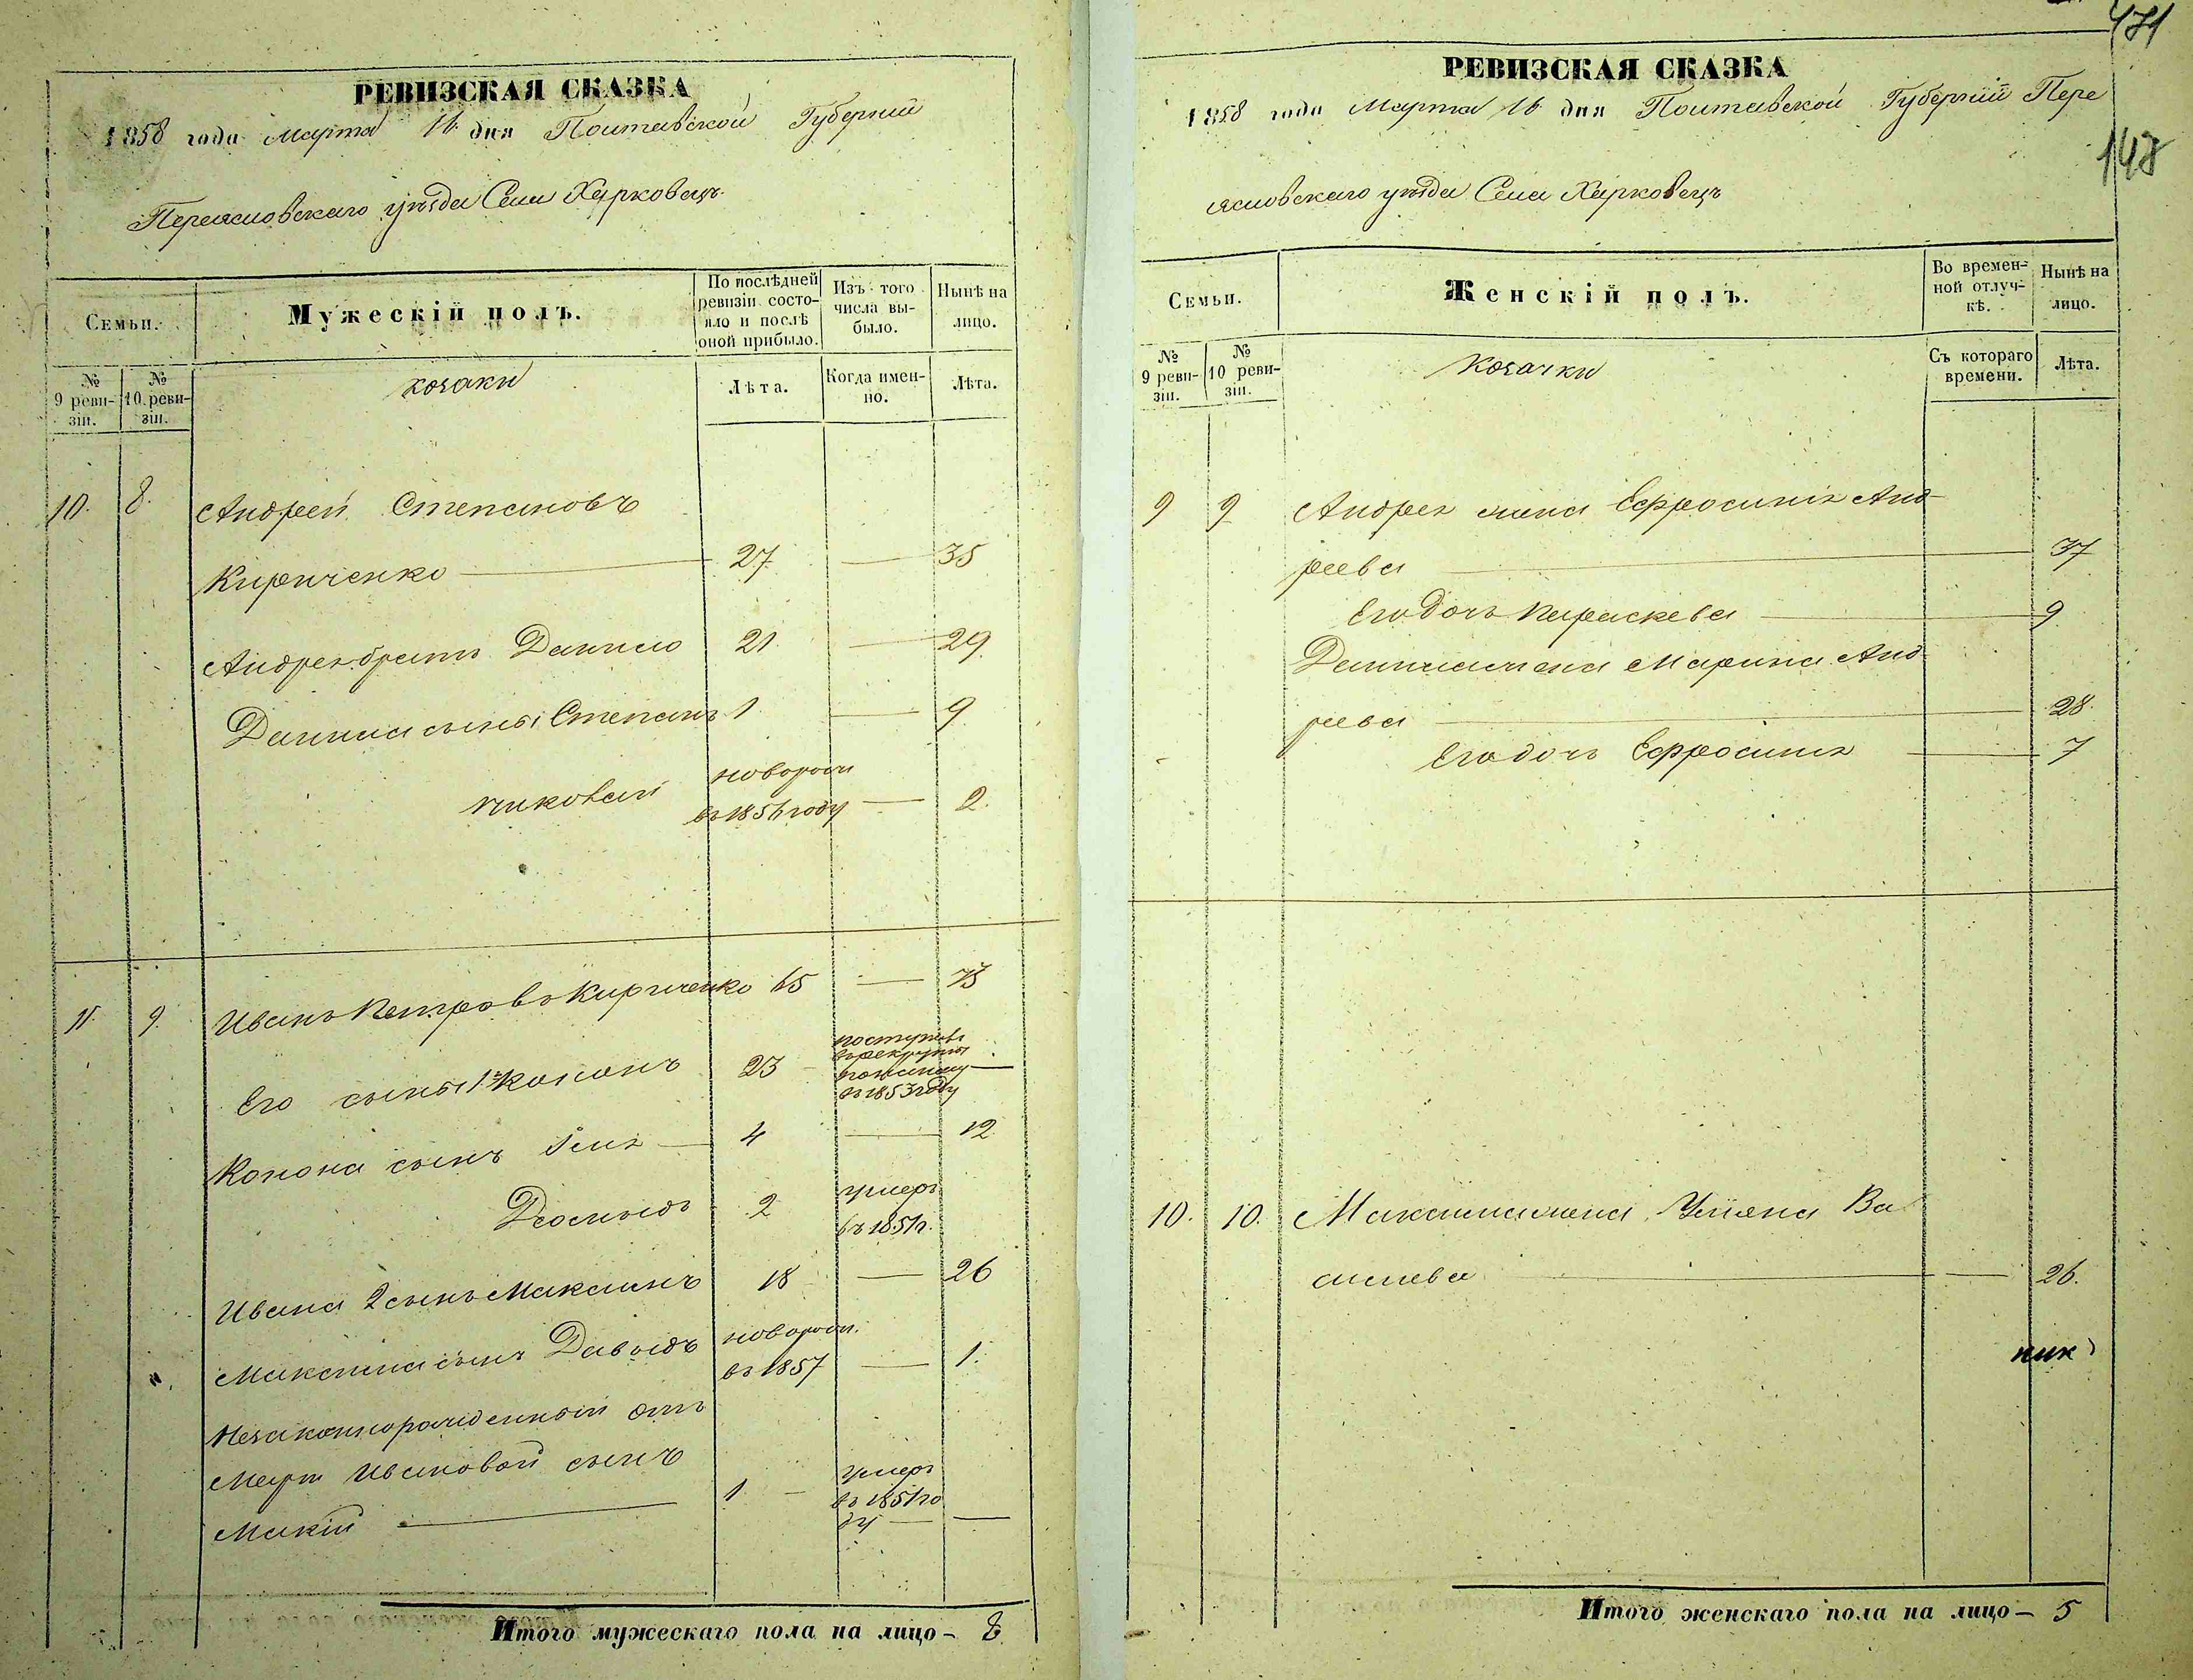 РЕВИЗСКАЯ СКАЗКА
1858 года Марта 16 дня Полтавской Губернии
Переясловскаго уѣзда Села Харковецъ
Семьи.
Мужескій полъ.
По послѣдней ревизіи состо-
яло и послѣ
оной прибыло.
Изъ того
числа вы-
было.
Нынѣ на
лицо.
№
9 реви-
зіи.
№
10 реви-
зіи.
козаки
Лѣта.
Когда имен-
но.
Лѣта.
10. 8. Андрей Степановъ
Кириченко — 27 — 35
Андрея братъ Данило 21 — 29
Данила сыны Степанъ 1 — 9
новорож
Николай въ 1856 году — 2.
11. 9. Иванъ Петровъ Кириченко 65 — 73
Его сыны 1й Кононъ 23
поступилъ
въ рекруты
въ 1853 году —
Конона сынъ Илія — 4 — 12
Деомидъ 2 умеръ
въ 1851г.
Ивана 2 сынъ Максимъ 18 — 26
Максима сынъ Давыдъ новорож.
въ 1857 — 1.
Незаконнорожденный отъ
Марѳ Ивановой сынъ
Макій — 1 — умеръ
въ 1851 го
ду — —
Итого мужескаго пола на лицо — 8
471
148
РЕВИЗСКАЯ СКАЗКА
1858 года Марта 16 дня Полтавской Губерніи Пере
ясловскаго уѣзда Села Харковецъ
Семьи.
Женскій полъ.
Во времен-
ной отлуч-
кѣ.
Нынѣ на
лицо.
№
9 реви-
зіи.
№
10 реви-
зіи.
Козачки
Съ котораго
времени.
Лѣта.
9 9 Андрея жена Ефросинія Анд-
реева — 37
Его дочь Параскева — 9
Данила жена Марина Анд-
реева — 28.
Его дочь Ефросинія — 7
10. 10. Максима жена Уліяна Ва
сильева — — 26.
Итого женскаго пола на лицо — 5